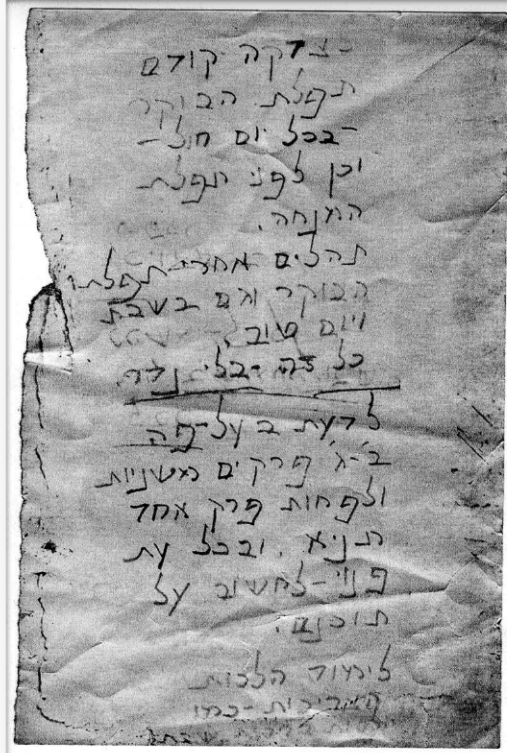 צדקה קודם
תפלת הבוקר
-בכל יום חול-
וכן לפני תפלת
המנחה.
תהלים אחרי תפלת
הבוקר וגם בשבת
ויום טוב.
כל זה -בלי נדר
לדעת בעל-פה
ב'-ג' פרקים משניות
ולפחות פרק אחד
תניא. ובכל עת
פנוי-לחשוב על
תוכנם.
לימוד הלכות
הצריכות-כמו
הלכות שבת